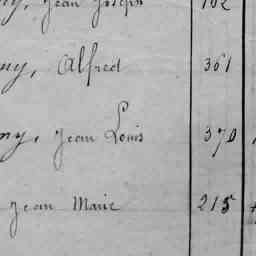 ny, Jean Joseph 102
ny, Alfred 361
ny, Jean Louis 370
Jean Marie 215